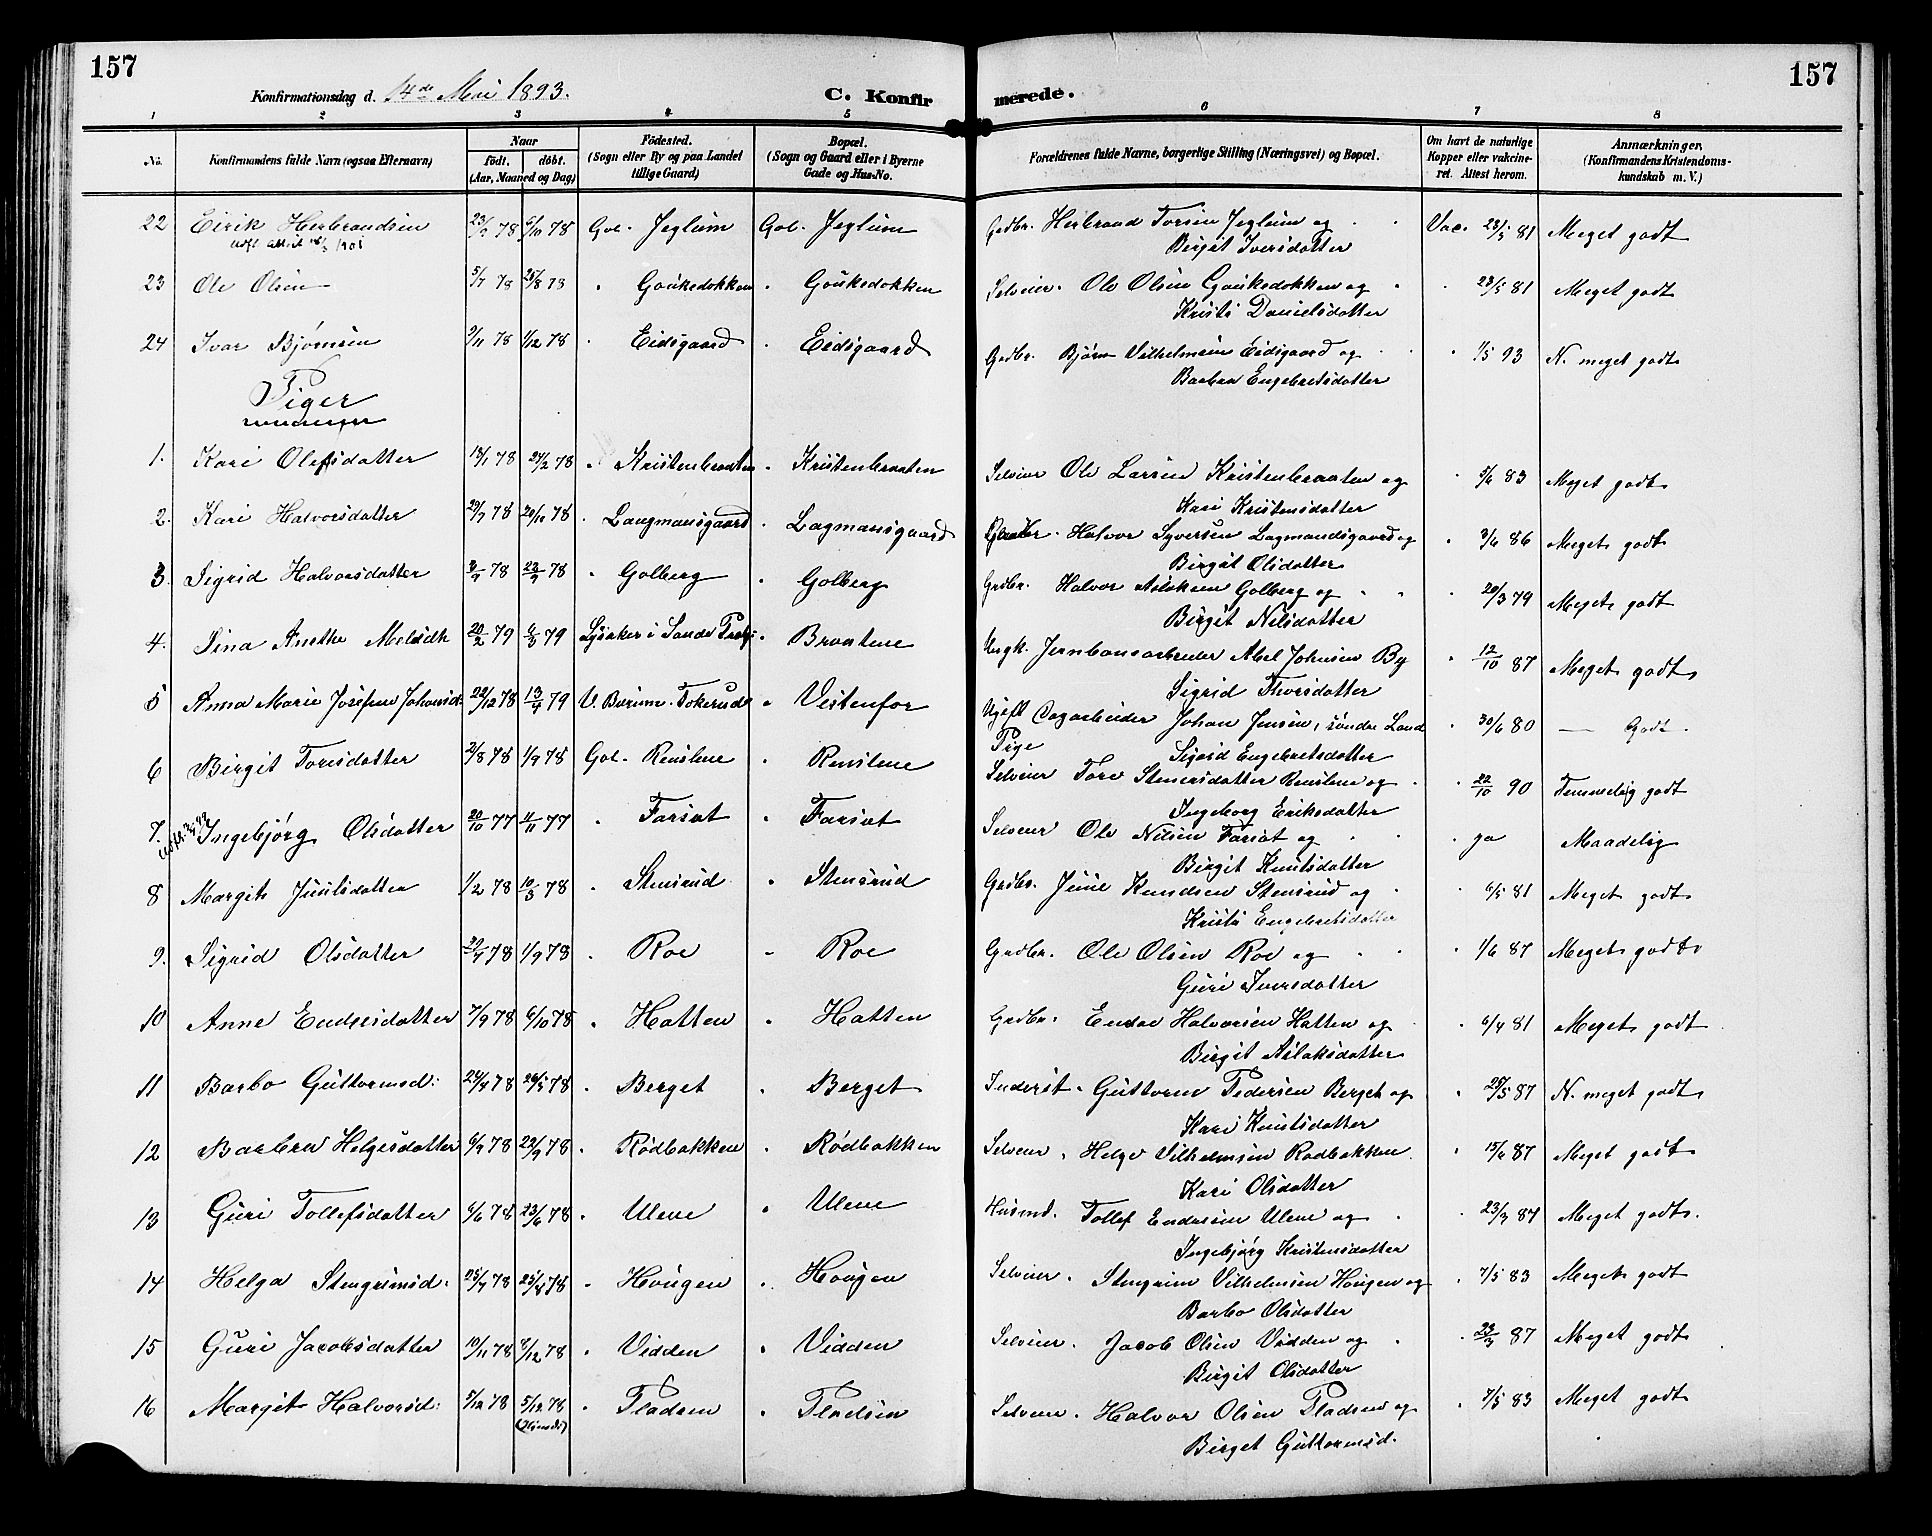 157
157
Konfirmationsdag d. 14de Mai 1893.
C. Konfirmerede.
1 2 3 4 5 6 7 8
No.
Konfirmandens fulde Navn (ogsaa Efternavn)
Naar
født. døbt.
(Aar, Maaned og Dag)
Fødested.
(Sogn eller By og paa Landet
tillige Gaard)
Bopæl.
(Sogn og Gaard eller i Byerne
Gade og Hus-No.
Forældrenes fulde Navne, borgerlige Stilling (Næringsvei) og Bopæl.
Om havt de naturlige
Kopper eller vakcine-
ret. Attest herom.
Anmærkninger,
(Konfirmandens Kristendoms-
kundskab m. V.)
22 Eirik Herbrandsen 23/9 78 6/10 78 Gol. Jeglum Gol. Jeglum Grdbr. Herbrand Torsen Jeglum og Vac. 23/5 81 Meget godt
Birgit Iversdatter
23 Ole Olsen 5/7 78 25/8 78 " Goukedokken " Goukedokken Selveier. Ole Olsen Goukedokken og " 23/5 81 Meget godt
Kristi Danielsdatter
24 Ivar Bjørnsen 9/11 78 1/12 78 " Eidsgaard " Eidsgaard Grdbr. Bjørn Vilhelmsen Eidsgaard og " 1/5 93 N. meget godt
Barbra Engebretsdatter
Piger
1. Kari Olesdatter 18/1 78 24/2 78 " Kristenbraaten " Kristenbraaten Selveier Ole Larsen Kristenbraaten og " 5/6 83 Meget godt
Kari Kristensdatter
2. Kari Halvorsdatter 29/7 78 20/10 78 " Laugmansgaard " Lagmansgaard Halvor Syversen Lagmandsgaard og " 3/6 86 Meget godt
Birgit Olsdatter
3. Sigrid Halvorsdatter 3/9 78 23/9 78 " Golberg " Golberg Grdbr. Halvor Aslaksen Golberg og " 20/3 79 Meget godt
Birgit Nilsdatter
4. Sina Anethe 20/2 79 6/3 79 Lysaker i Sande " Braatene Ungk. Jernbanearbeider Abel Johnsen By " 12/10 87 Meget godt
Sigrid Thorsdatter
5 Anna Marie Josefine Johansd. 22/12 78 13/4 79 V. Bærum. Tokerud " Vestenfor Ugift Dagarbeider Johan Jensen, søndre Land " 30/6 80 — Godt.
Pige Sigrid Engebretsdatter
6 Birgit Toresdatter 2/8 78 1/9 78 Gol. Renslene " Renslene Selveier Tore Stenersdatter Renslene og " 22/10 90 Temmelig godt
Ingeborg Eriksdatter
7. Ingebjørg Olsdatter 20/10 77 4/11 77 " Farsat " Farsat Selveier Ole Nilsen Farsat og " ja Maadelig
Birgit Knutsdatter
8 Margit Juulsdatter 1/2 78 10/3 78 " Stensrud " Stensrud Grdbr. Juul Knudsen Stensrud og " 6/5 81 Meget godt
Kristi Engebretsdatter
9. Sigrid Olsdatter 30/7 78 1/9 78 " Roe " Roe Grdbr. Ole Olsen Roe og " 1/6 87 Meget godt
Guri Iversdatter
10 Anne Endresdatter 7/9 78 6/10 78 " Hatten " Hatten Grdbr. Endre Halvorsen Hatten og " 6/4 81 Meget godt
Birgit Aslaksdatter
11 Barbo Guttormsd: 24/4 78 26/5 78 " Berget " Berget Inderst. Guttorm Pedersen Berget og " 28/5 87 N. meget godt
Kari Knutsdatter
12 Barbra Helgesdatter 6/9 78 22/9 78 " Rødbakken " Rødbakken Selveier. Helge Vilhelmsen Rødbakken " 15/6 87 Meget godt
Kari Olsdatter
13 Guri Tollefsdatter 6/6 78 23/6 78 " Ulene " Ulene Husmd. Tollef Endresen Ulene og " 23/3 87 Meget godt.
Ingebjørg Kristensdatter
14 Helga Stengrimsd. 25/7 78 25/8 78 " Hougen " Hougen Selveier. Stengrim Vilhelmsen Hougen og " 7/5 83 Meget godt
Barbo Olsdatter
15 Guri Jacobsdatter 10/11 78 8/12 78 " Vidden " Vidden Selveier. Jacob Olsen Vidden og " 23/3 87 Meget godt
Birgit Olsdatter
16 Margit Halvorsd: 5/12 78 5/12 78 " Pladsen " Pladsen Selveier. Halvor Olsen Pladsen og " 7/5 83 Meget godt
(Hjemdt) Birget Guttormsd.